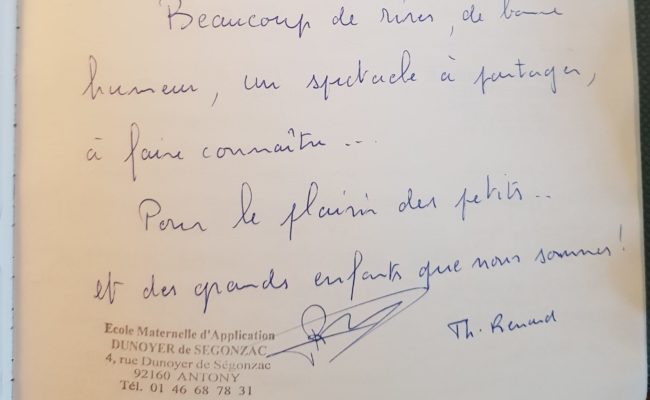 Beaucoup de rires, de bonne
humeur, un spectacle à partager,
à faire connaître ...
Pour le plaisir des petits..
et des grands enfants que nous sommes!
Th. Renard
Ecole Maternelle d'Application
DUNOYER de SEGONZAC
4, rue Dunoyer de Ségonzac
92160 ANTONY
Tél. 01 46 68 78 31